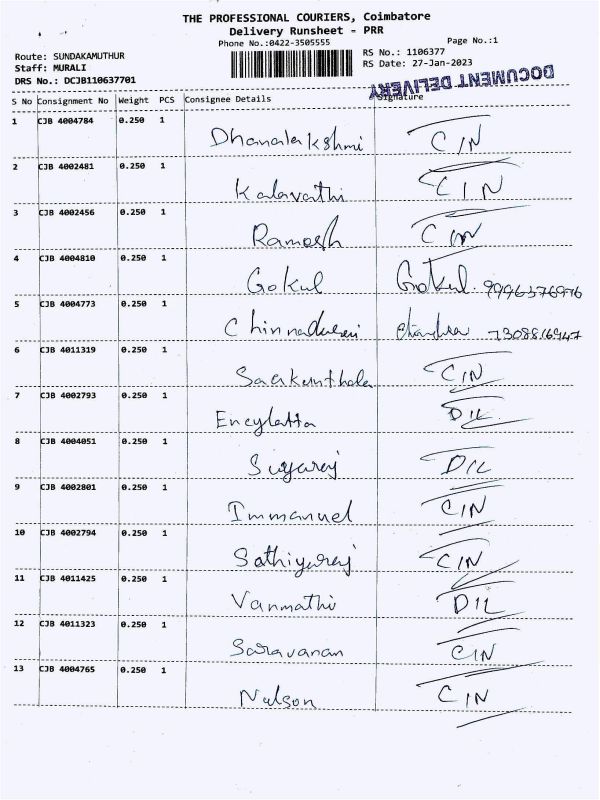 THE PROFESSIONAL COURIERS, Coimbatore
Delivery Runsheet - PRR
Phone No.:0422-3505555 Page No.:1
Route: SUNDAKAMUTHUR RS No.: 1106377
Staff: MURALI RS Date: 27-Jan-2023
DRS No.: DCJB110637701
DOCUMENT DELIVERY
S No Consignment No Weight PCS Consignee Details Signature
1 CJB 4004784 0.250 1
Dhanalakshmi CIN
2 CJB 4002481 0.250 1
Kalavathi CIN
3 CJB 4002456 0.250 1
Ramesh CIN
4 CJB 4004810 0.250 1
Gokul Gokul. 9996576976
5 CJB 4004773 0.250 1
Chinnadurai 7308816947
6 CJB 4011319 0.250 1
Saakunthala CIN
7 CJB 4002793 0.250 1
DIL
8 CJB 4004051 0.250 1
DIL
9 CJB 4002801 0.250 1
Immanuel CIN
10 CJB 4002794 0.250 1
Sathiyaraj CIN
11 CJB 4011425 0.250 1
Vanmathi DIL
12 CJB 4011323 0.250 1
Saravanan CIN
13 CJB 4004765 0.250 1
Nelson CIN